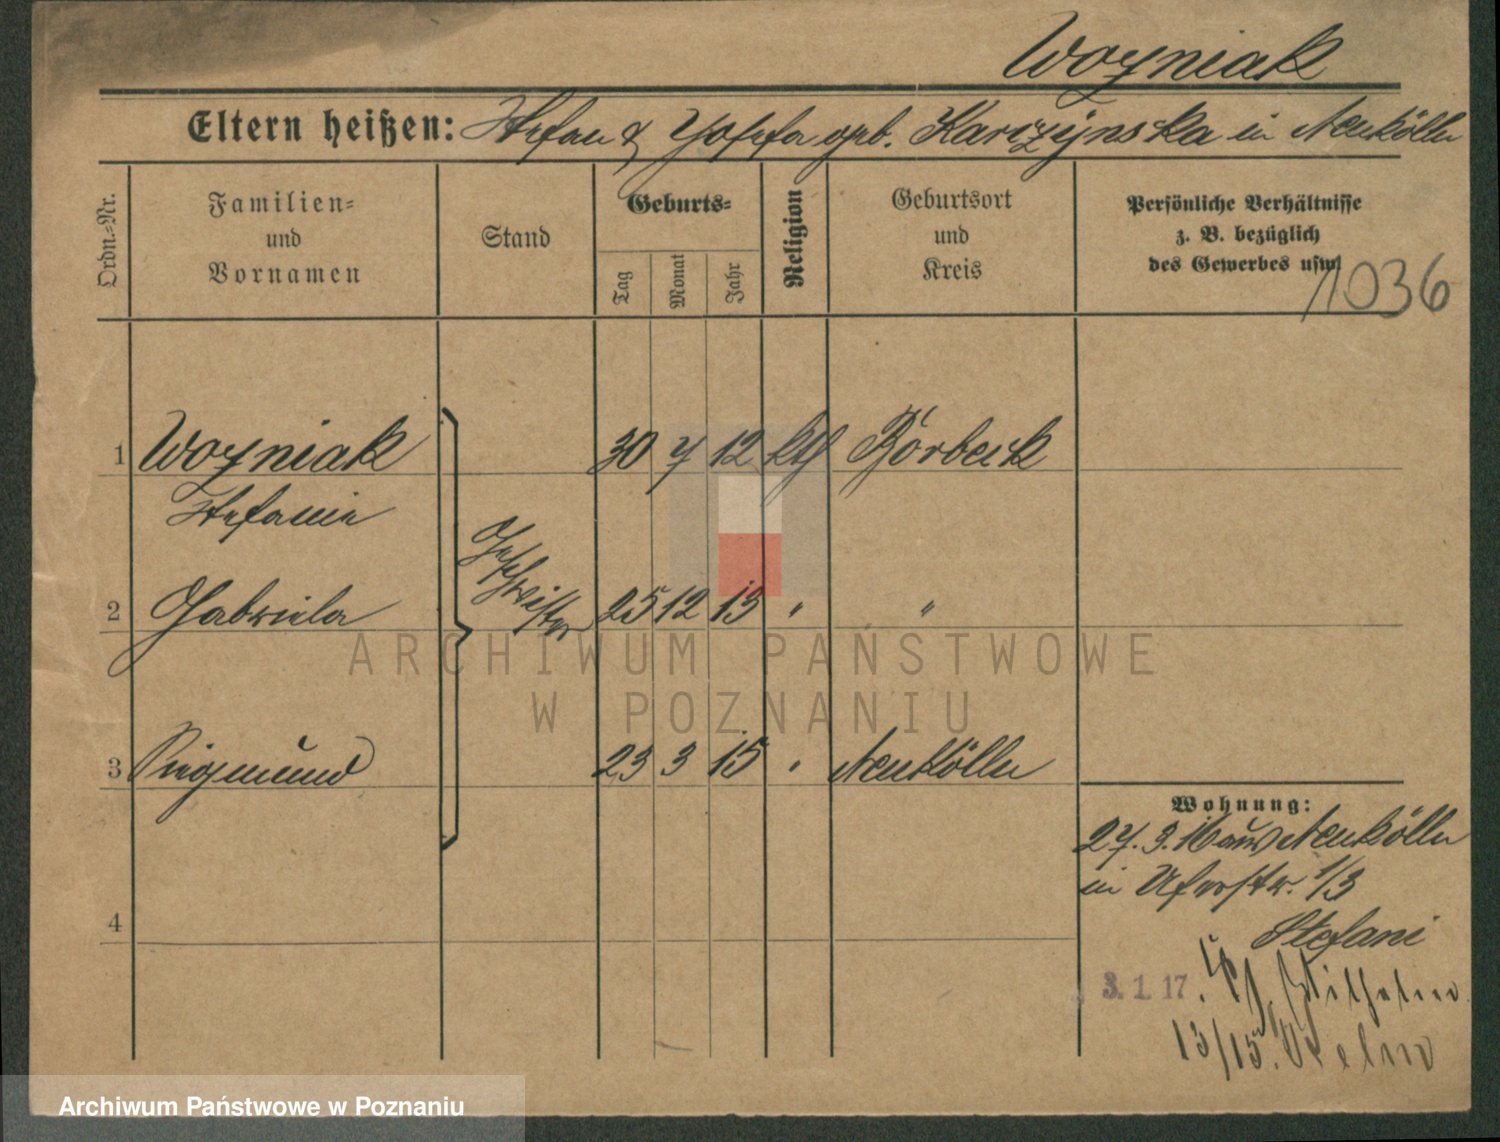 Wozniak
Eltern heißen: Stefan & Josefa geb. Karczynska in Neukölln
Ordn.-Nr.
Familien-
und
Vornamen
Stand
Geburts-
Tag
Monat
Jahr
Religion
Geburtsort
und
Kreis
Persönliche Verhältnisse
z. B. bezüglich
des Gewerbes usw.
1036
1 Wozniak 30 7 12 kth Borbeck
Stefanie
Geschwister
2 Gabriela 25 12 13 " "
3 Siegmund 23 3 15 " Neukölln
Wohnung:
27. 3. 16 aus Neukölln
in Uferstr. 1/3
Stefani
4
3. 1. 17. Wilhelm
13/15.
ARCHIWUM PAŃSTWOWE
W POZNANIU
Archiwum Państwowe w Poznaniu